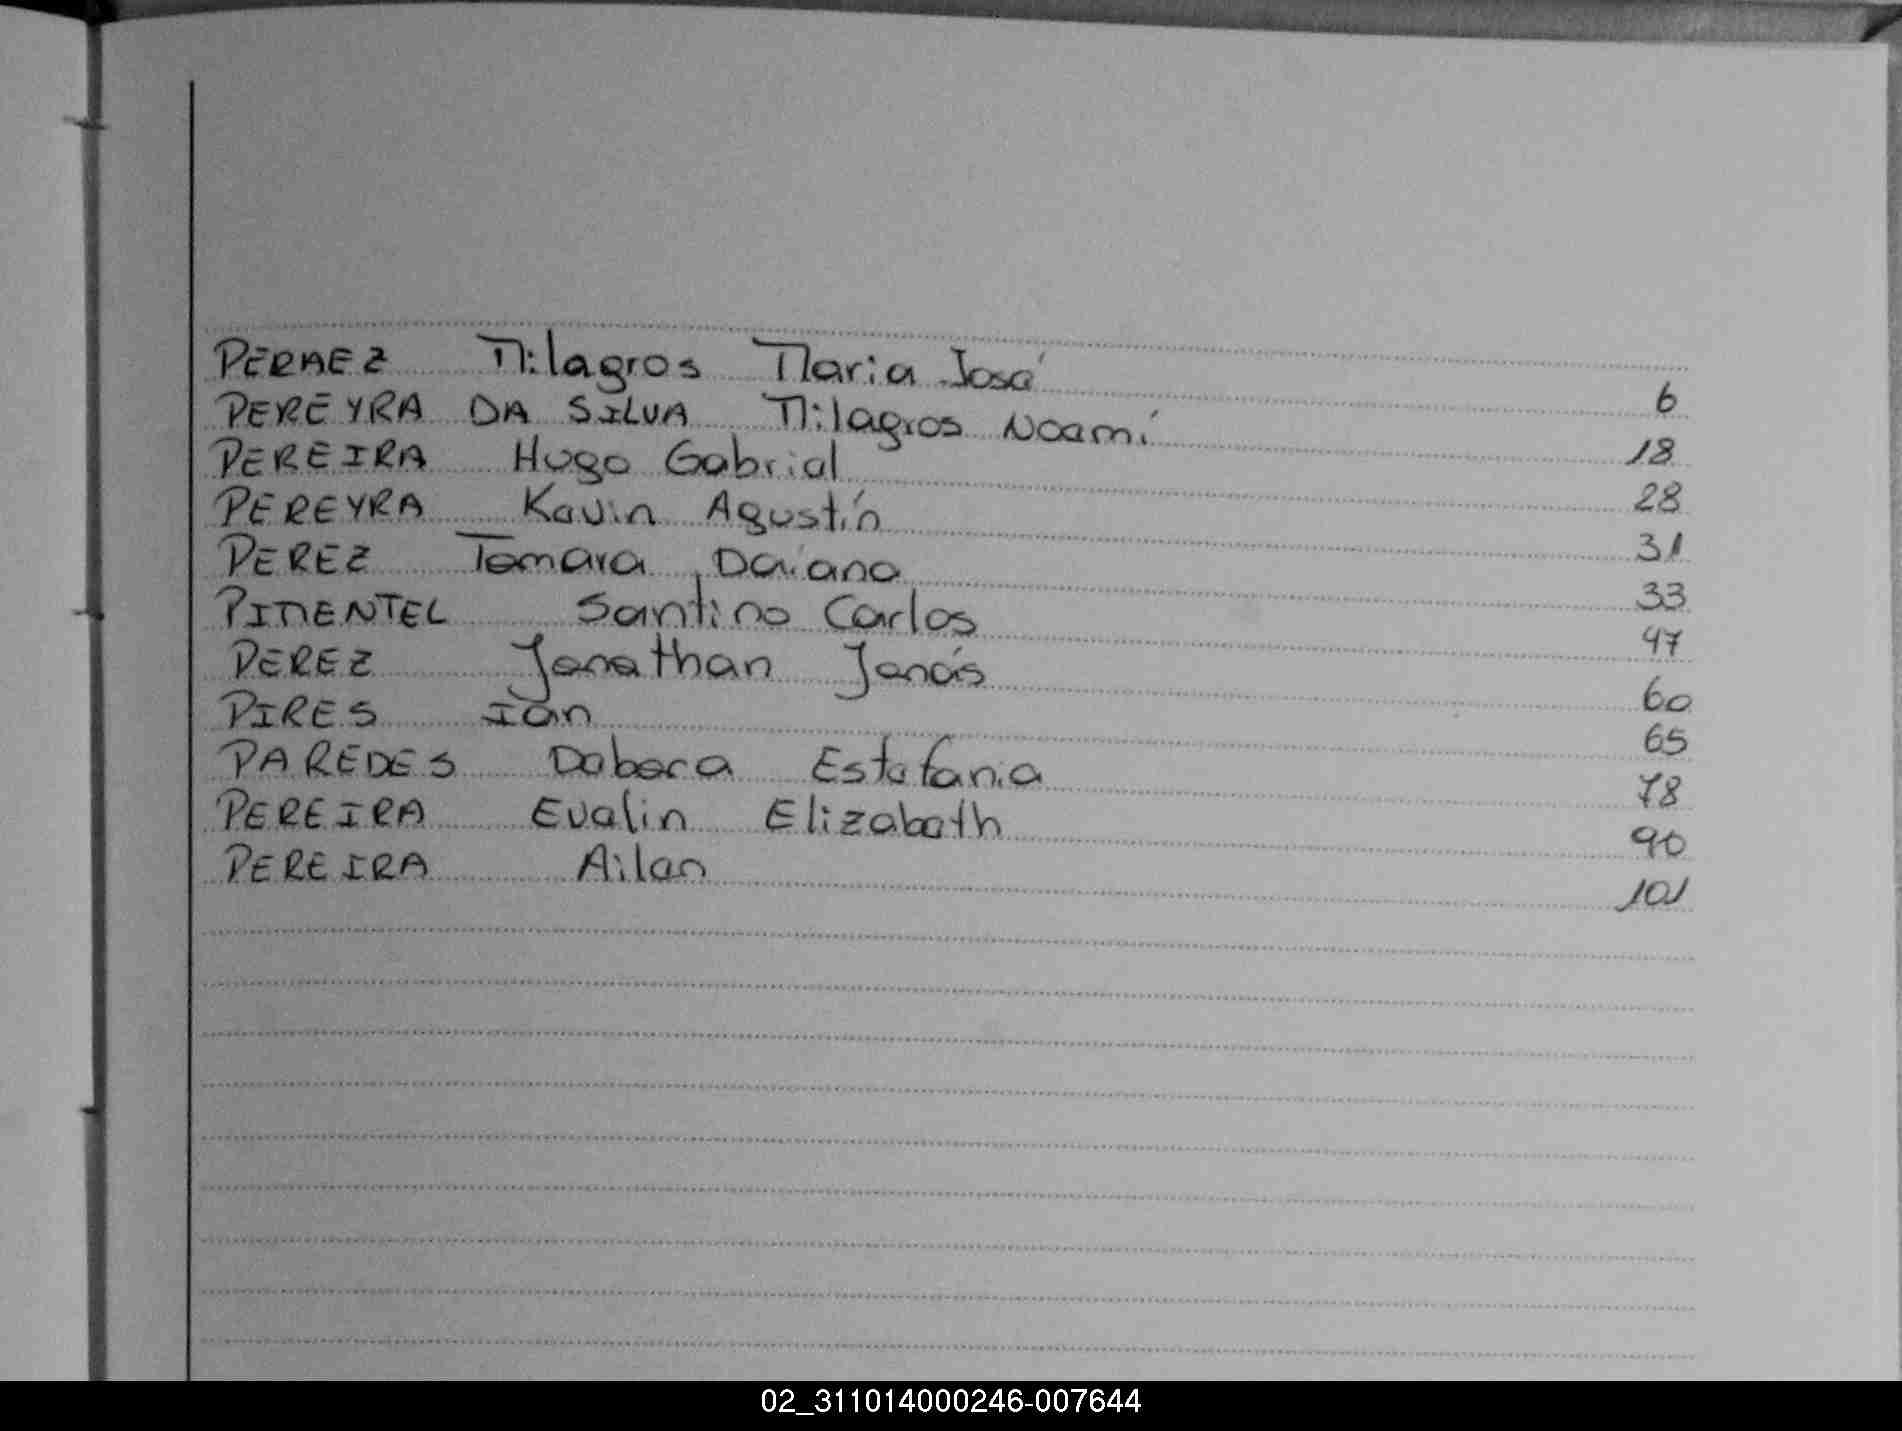 PERAEZ Milagros Maria José 6
PEREYRA DA SILVA Milagros Noemí 18
PEREIRA Hugo Gabriel 28
PEREYRA Kevin Agustín 31
PEREZ Tamara Daiana 33
PIMENTEL Santino Carlos 47
PEREZ Jonathan Jonás 60
PIRES Ian 65
PAREDES Debora Estefania 78
PEREIRA Evelin Elizabeth 90
PEREIRA Ailen 101
02_311014000246-007644